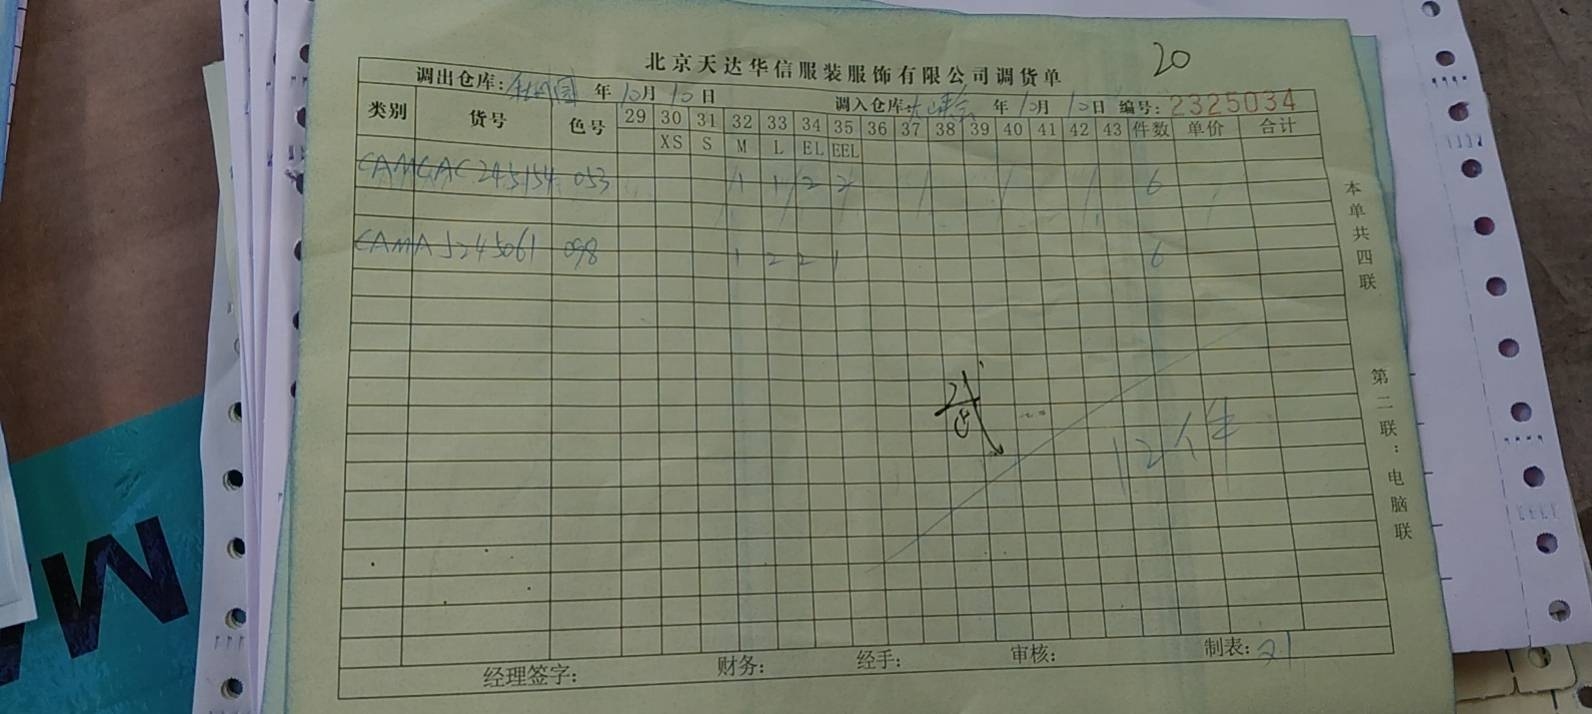 20
北京天达华信服装服饰有限公司调货单
调出仓库: 年10月10日 调入仓库: 年10月10日 编号: 2325034
类别 货号 色号 29 30 31 32 33 34 35 36 37 38 39 40 41 42 43 件数 单价 合计
XS S M L EL EEL
CAMCAC245154 053 1 1 2 2 6
CAMAJ245061 098 1 2 2 1 6
武
12件
经理签字: 财务: 经手: 审核: 制表:
本单共四联
第二联：电脑联